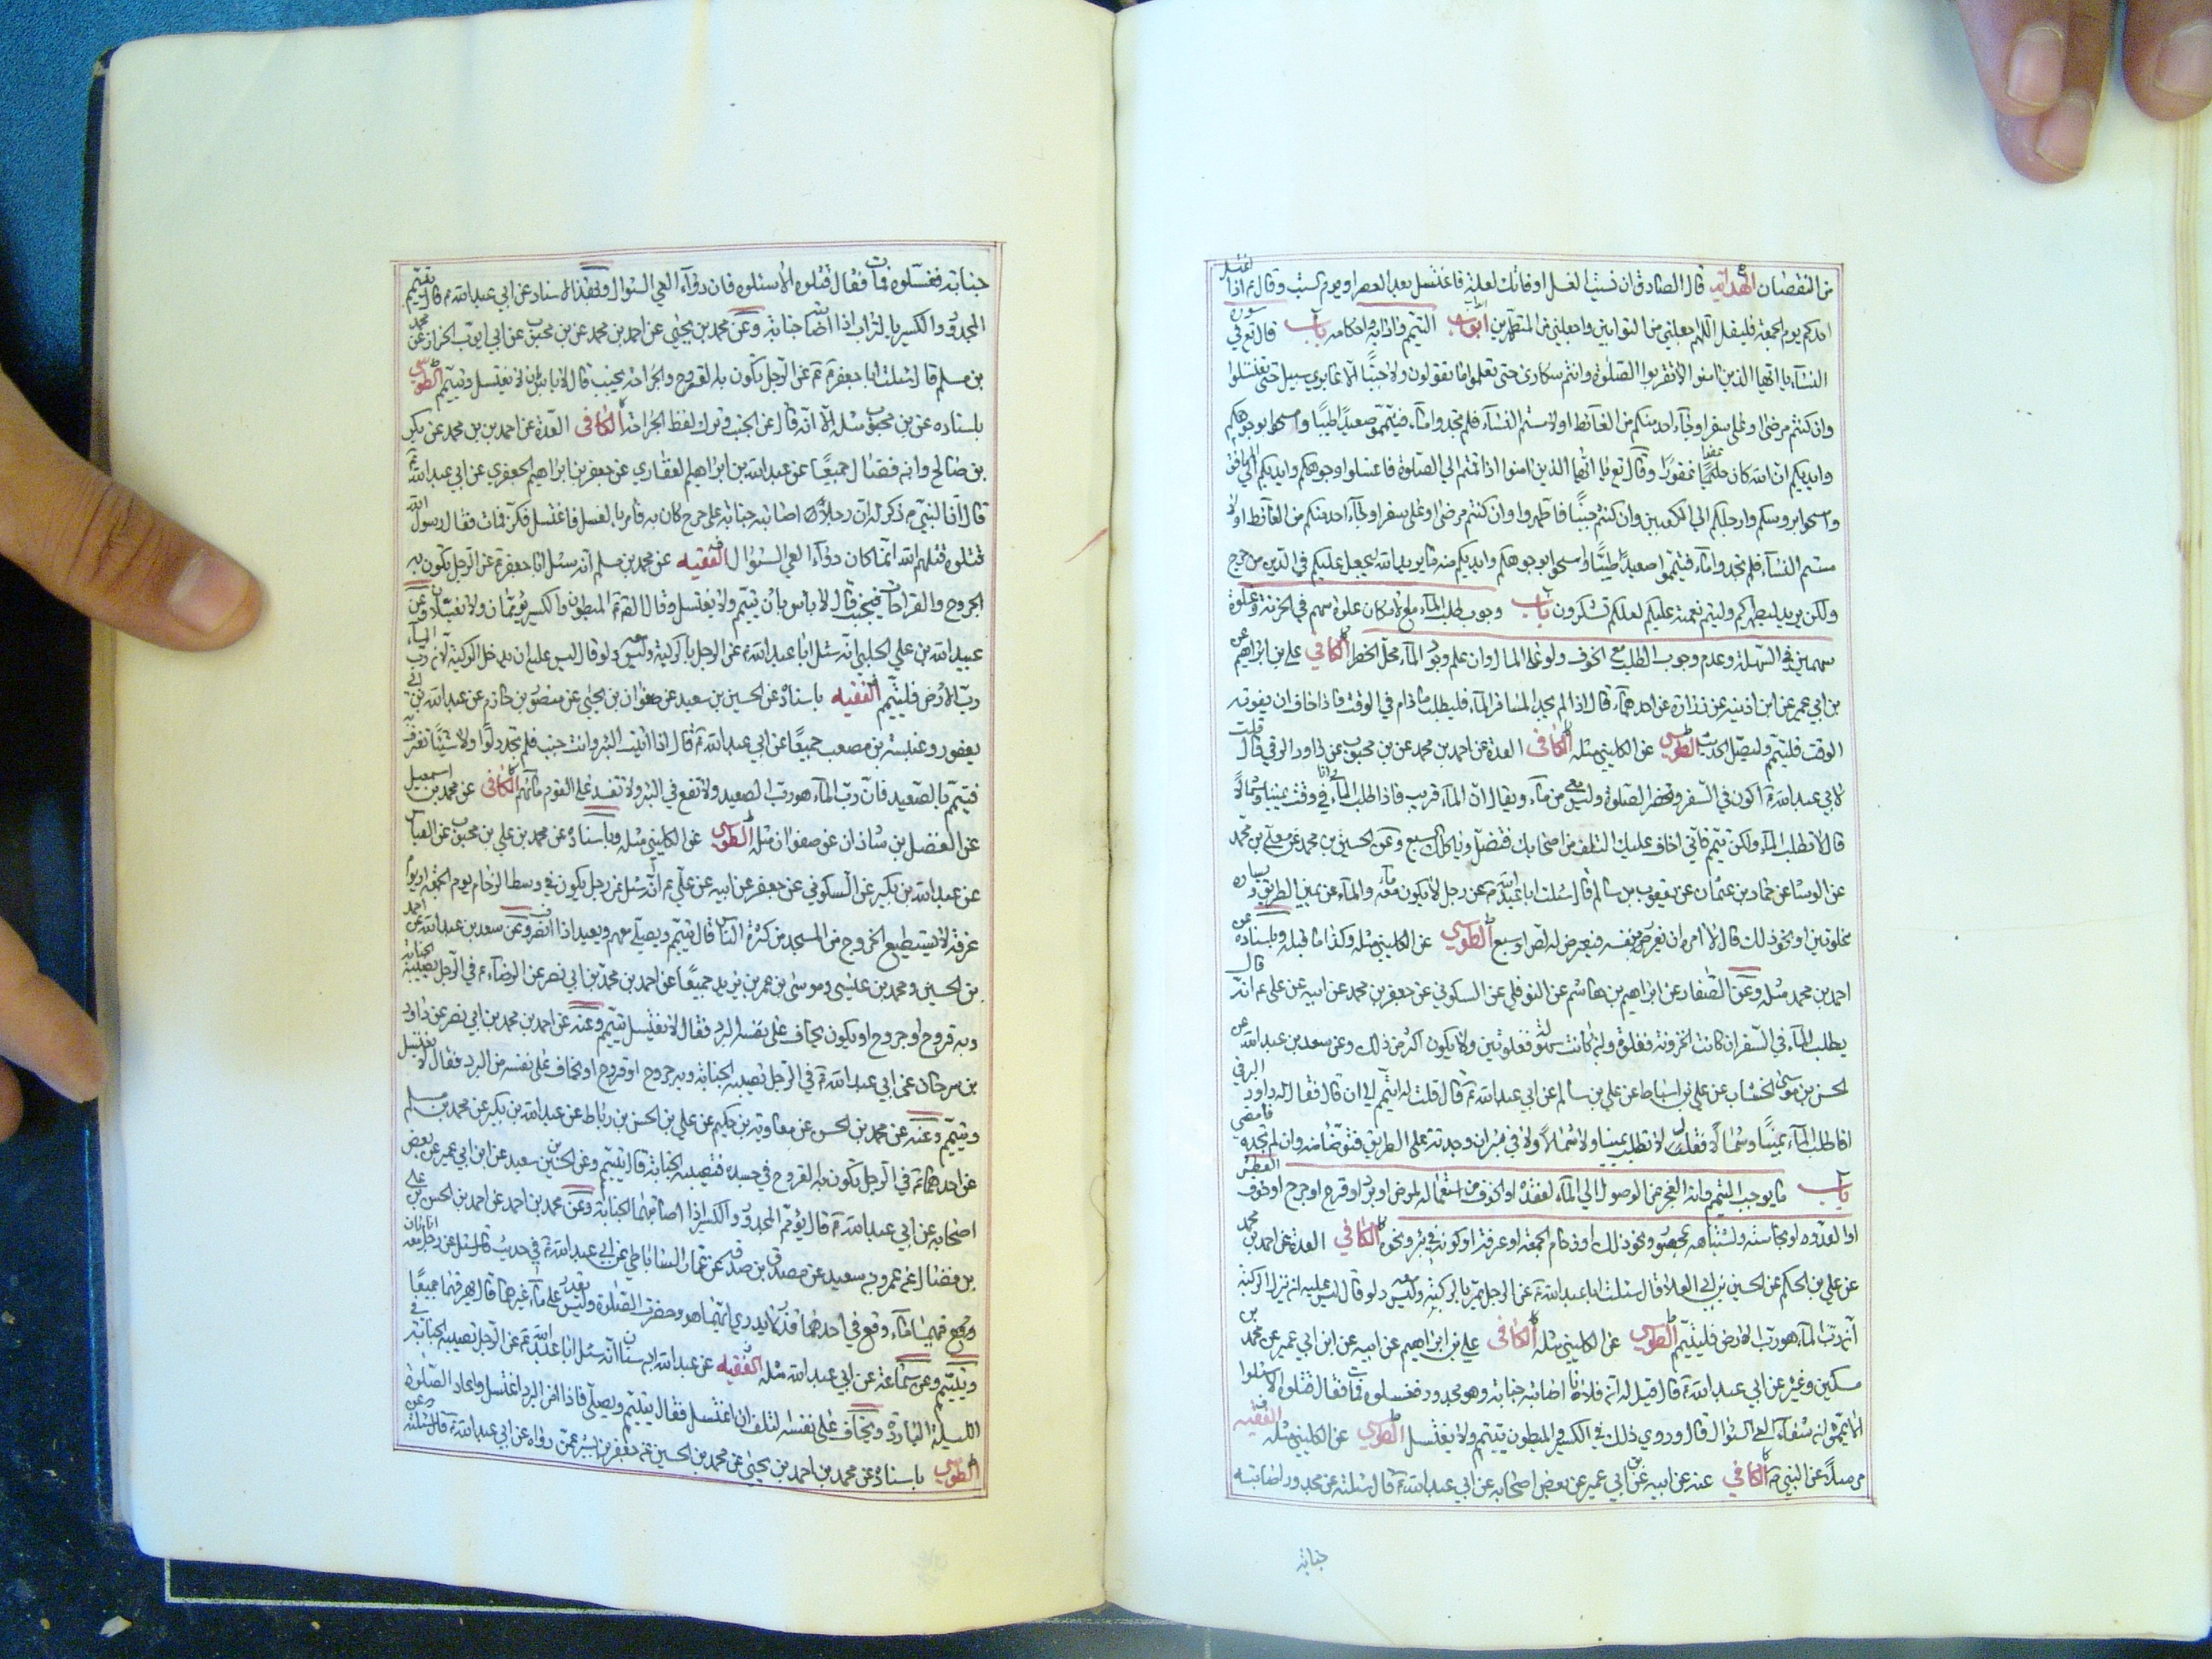 من النقصان الهداية قال الصادق ان نسيت الغسل او فاتك لعلة فاغتسل بعد العصر او يوم السبت وقال ع اذا اغتسل
احدكم يوم الجمعة فليقل اللهم اجعلني من التوابين واجعلني من المتطهرين ابواب التيمم وادابه واحكامه باب قال تع في سورة
النسآء يا ايها الذين امنوا لا تقربوا الصلوة وانتم سكارى حتى تعلموا ما تقولون ولا جنبًا الا عابري سبيل حتى تغتسلوا
وان كنتم مرضى او على سفر او جآء احد منكم من الغآئط او لامستم النسآء فلم تجدوا مآء فتيمموا صعيدًا طيبًا وامسحوا بوجوهكم
وايديكم ان الله كان عفوًا غفورًا وقال تع يا ايها الذين امنوا اذا قمتم الى الصلوة فاغسلوا وجوهكم وايديكم الى المرافق
وامسحوا برؤسكم وارجلكم الى الكعبين وان كنتم جنبًا فاطهروا وان كنتم مرضى او على سفر او جآء احد منكم من الغآئط او لا
مستم النسآء فلم تجدوا مآء فتيمموا صعيدًا طيبًا وامسحوا بوجوهكم وايديكم منه ما يريد الله ليجعل عليكم في الدين من حرج
ولكن يريد ليطهركم وليتم نعمته عليكم لعلكم تشكرون باب وجوب طلب المآء مع الامكان غلوة سهم في الحزنة وغلوة
سهمين في السهلة وعدم وجوب الطلب مع الخوف ولو على المال وان علم وجود المآء محل الخطر الكافي علي بن ابراهيم عن
بن ابي عمير عن ابن اذينه عن زرارة عن احدهما ع قال اذا لم يجد المسافر المآء فليطلب ما دام في الوقت فاذا خاف ان يفوته
الوقت فليتيمم وليصل الحديث الطوسي عن الكليني مثله الكافي العدة عن احمد بن محمد عن بن محبوب عن داود الرقي قال قلت
لابي عبد الله ع اكون في السفر وتحضر الصلوة وليس معي مآء ويقال ان المآء قريب منا فاذا طلب المآء وانا في وقت يمينا وشمالًا
قال لا تطلب المآء ولكن تيمم فاني اخاف عليك التخلف من اصحابك فتضل وياكلك السبع وعن الحسين بن محمد عن معلى بن محمد
عن الوشا عن حماد بن عثمان عن يعقوب بن سالم قال سئلت ابا عبد الله ع عن رجل لا يكون معه مآء والمآء عن يمين الطريق ويساره
غلوتين او نحو ذلك قال لا امره ان يغرر بنفسه فيعرض له لص او سبع الطوسي عن الكليني مثله وكذا ما قبله وباسناده عن
احمد بن محمد مثله وعن الصفار عن ابراهيم بن هاشم عن النوفلي عن السكوني عن جعفر بن محمد عن ابيه عن علي ع انه قال
يطلب المآء في السفر ان كانت الحزونة فغلوة وان كانت سهولة فغلوتين ولا يكون اكثر من ذلك وعن سعد بن عبد الله عن
الحسن بن موسى الخشاب عن علي بن اسباط عن علي بن سالم عن ابي عبد الله ع قال قلت له اتيمم الى ان قال فقال له داود الرقي
افاطلب المآء يمينًا وشمالًا فقال لا تطلب يمينا ولا شمالًا ولا في بئر ان وجدته على الطريق فتوضأ منه وان لم تجده فامضي
باب ما يوجب التيمم وانه العجز عن الوصول الى المآء لفقده او الخوف من استعماله لمرض او برد او قرح او جرح او خوف العطش
او العدو
عن علي بن الحكم عن الحسين بن ابي العلا قال سئلت ابا عبد الله ع عن الرجل يمر بالركية وليس معه دلو قال ليس عليه ان ينزل الركية
ان رب المآء هو رب الارض فليتيمم الطوسي عن الكليني مثله الكافي علي بن ابراهيم عن ابيه عن ابن ابي عمير عن محمد بن
مسكين وغيره عن ابي عبد الله ع قال قيل له ان فلانًا اصابته جنابة وهو مجدور فغسلوه فمات فقال قتلوه الا سئلوا
الا يمموه ان شفآء العي السؤال قال وروي ذلك في الكسير والمبطون يتيمم ولا يغتسل الطوسي عن الكليني مثله الفقيه
مرسلًا عن النبي ص الكافي عنه عن ابيه عن ابن ابي عمير عن بعض اصحابه عن ابي عبد الله ع قال سئلته عن مجدور اصابته
جنابة
جنابة فغسلوه فمات فقال قتلوه الا سئلوه فان دوآء العي السؤال وبهذا الاسناد عن ابي عبد الله ع قال يتيمم
المجدور والكسير بالتراب اذا اصابته جنابة وعن محمد بن يحيى عن احمد بن محمد عن بن محبوب عن ابي ايوب الخزاز عن محمد
بن مسلم قال سئلت ابا جعفر ع عن الرجل يكون به القروح والجراحة يجنب قال لا باس بان لا يغتسل ويتيمم الطوسي
باسناده عن بن محبوب مثله الا انه قال عن الجنب وترك لفظ الجراحة الكافي العدة عن احمد بن محمد عن بكر
بن صالح وابن فضال جميعًا عن عبد الله بن ابراهيم الغفاري عن جعفر بن ابراهيم الجعفري عن ابي عبد الله ع
قال ان النبي ص ذكر له ان رجلًا اصابته جنابة على جرح كان به فامر بالغسل فاغتسل فكز فمات فقال رسول الله
قتلوه قتلهم الله انما كان دوآء العي السؤال الفقيه عن محمد بن مسلم انه سئل ابا جعفر ع عن الرجل يكون به
الجروح والقراحات فيجنب قال لا باس بان يتيمم ولا يغتسل وقال الصادق ع المبطون والكسير يؤممان ولا يغسلان وعن
عبيد الله بن علي الحلبي انه سئل ابا عبد الله ع عن الرجل يمر بالركية وليس معه دلو قال ليس عليه ان يدخل الركية لان رب المآء
رب الارض فليتيمم الفقيه باسناده عن الحسين بن سعيد عن صفوان بن يحيى عن منصور بن حازم عن عبد الله بن ابي
يعفور وعنبسة بن مصعب جميعًا عن ابي عبد الله ع قال اذا اتيت البئر وانت جنب فلم تجد دلوًا ولا شيئًا تغرف به
فتيمم بالصعيد فان رب المآء هو رب الصعيد ولا تقع في البئر ولا تفسد على القوم مآئهم الكافي عن محمد بن اسمعيل
عن الفضل بن شاذان عن صفوان مثله الطوسي عن الكليني مثله وباسناده عن محمد بن علي بن محبوب عن العباس
عن عبد الله بن بكير عن السكوني عن جعفر عن ابيه عن علي ع انه سئل عن رجل يكون في وسط الزحام يوم الجمعة او يوم
عرفة لا يستطيع الخروج من المسجد من كثرة الناس قال تيمم ويصلي معهم ويعيد اذا انصرف وعن سعد بن عبد الله عن احمد
بن الحسين ومحمد بن عيسى وموسى بن عمر بن يزيد جميعًا عن احمد بن محمد بن ابي نصر عن الرضآ ع في الرجل تصيبه الجنابة
وبه قروح او جروح او يكون يخاف على نفسه البرد فقال لا يغتسل يتيمم وعنه عن احمد بن محمد بن ابي نصر عن داود
بن سرحان عن ابي عبد الله ع في الرجل تصيبه الجنابة وبه جروح او قروح او يخاف على نفسه من البرد فقال لا يغتسل
ويتيمم وعنه عن محمد بن الحسن عن معاوية بن حكيم عن علي بن الحسن بن رباط عن عبد الله بن بكير عن محمد بن مسلم
عن احدهما ع في الرجل تكون به القروح في جسده فتصيبه الجنابة قال يتيمم وعن الحسين بن سعيد عن ابن ابي عمير عن بعض
اصحابه عن ابي عبد الله ع قال يؤمم المجدور والكسير اذا اصابتهما الجنابة وعن محمد بن احمد عن احمد بن الحسن بن علي
بن فضال عن عمرو بن سعيد عن مصدق بن صدقه عن عمار الساباطي عن ابي عبد الله ع في حديث قال سئل عن رجل معه اناءان
وقع في احدهما قذر لا يدري ايهما هو وحضرت الصلوة وليس يقدر على مآء غيرهما قال يهريقهما جميعًا
ويتيمم وعن سماعة عن ابي عبد الله مثله الفقيه عن عبد الله بن سنان انه سئل ابا عبد الله ع عن الرجل تصيبه الجنابة في
الليلة الباردة ويخاف على نفسه التلف ان اغتسل فقال يتيمم ويصلي فاذا امن البرد اغتسل واعاد الصلوة وعن
الطوسي باسناده عن محمد بن احمد بن يحيى عن محمد بن الحسين عن جعفر بن بشير عمن رواه عن ابي عبد الله ع قال سئلته